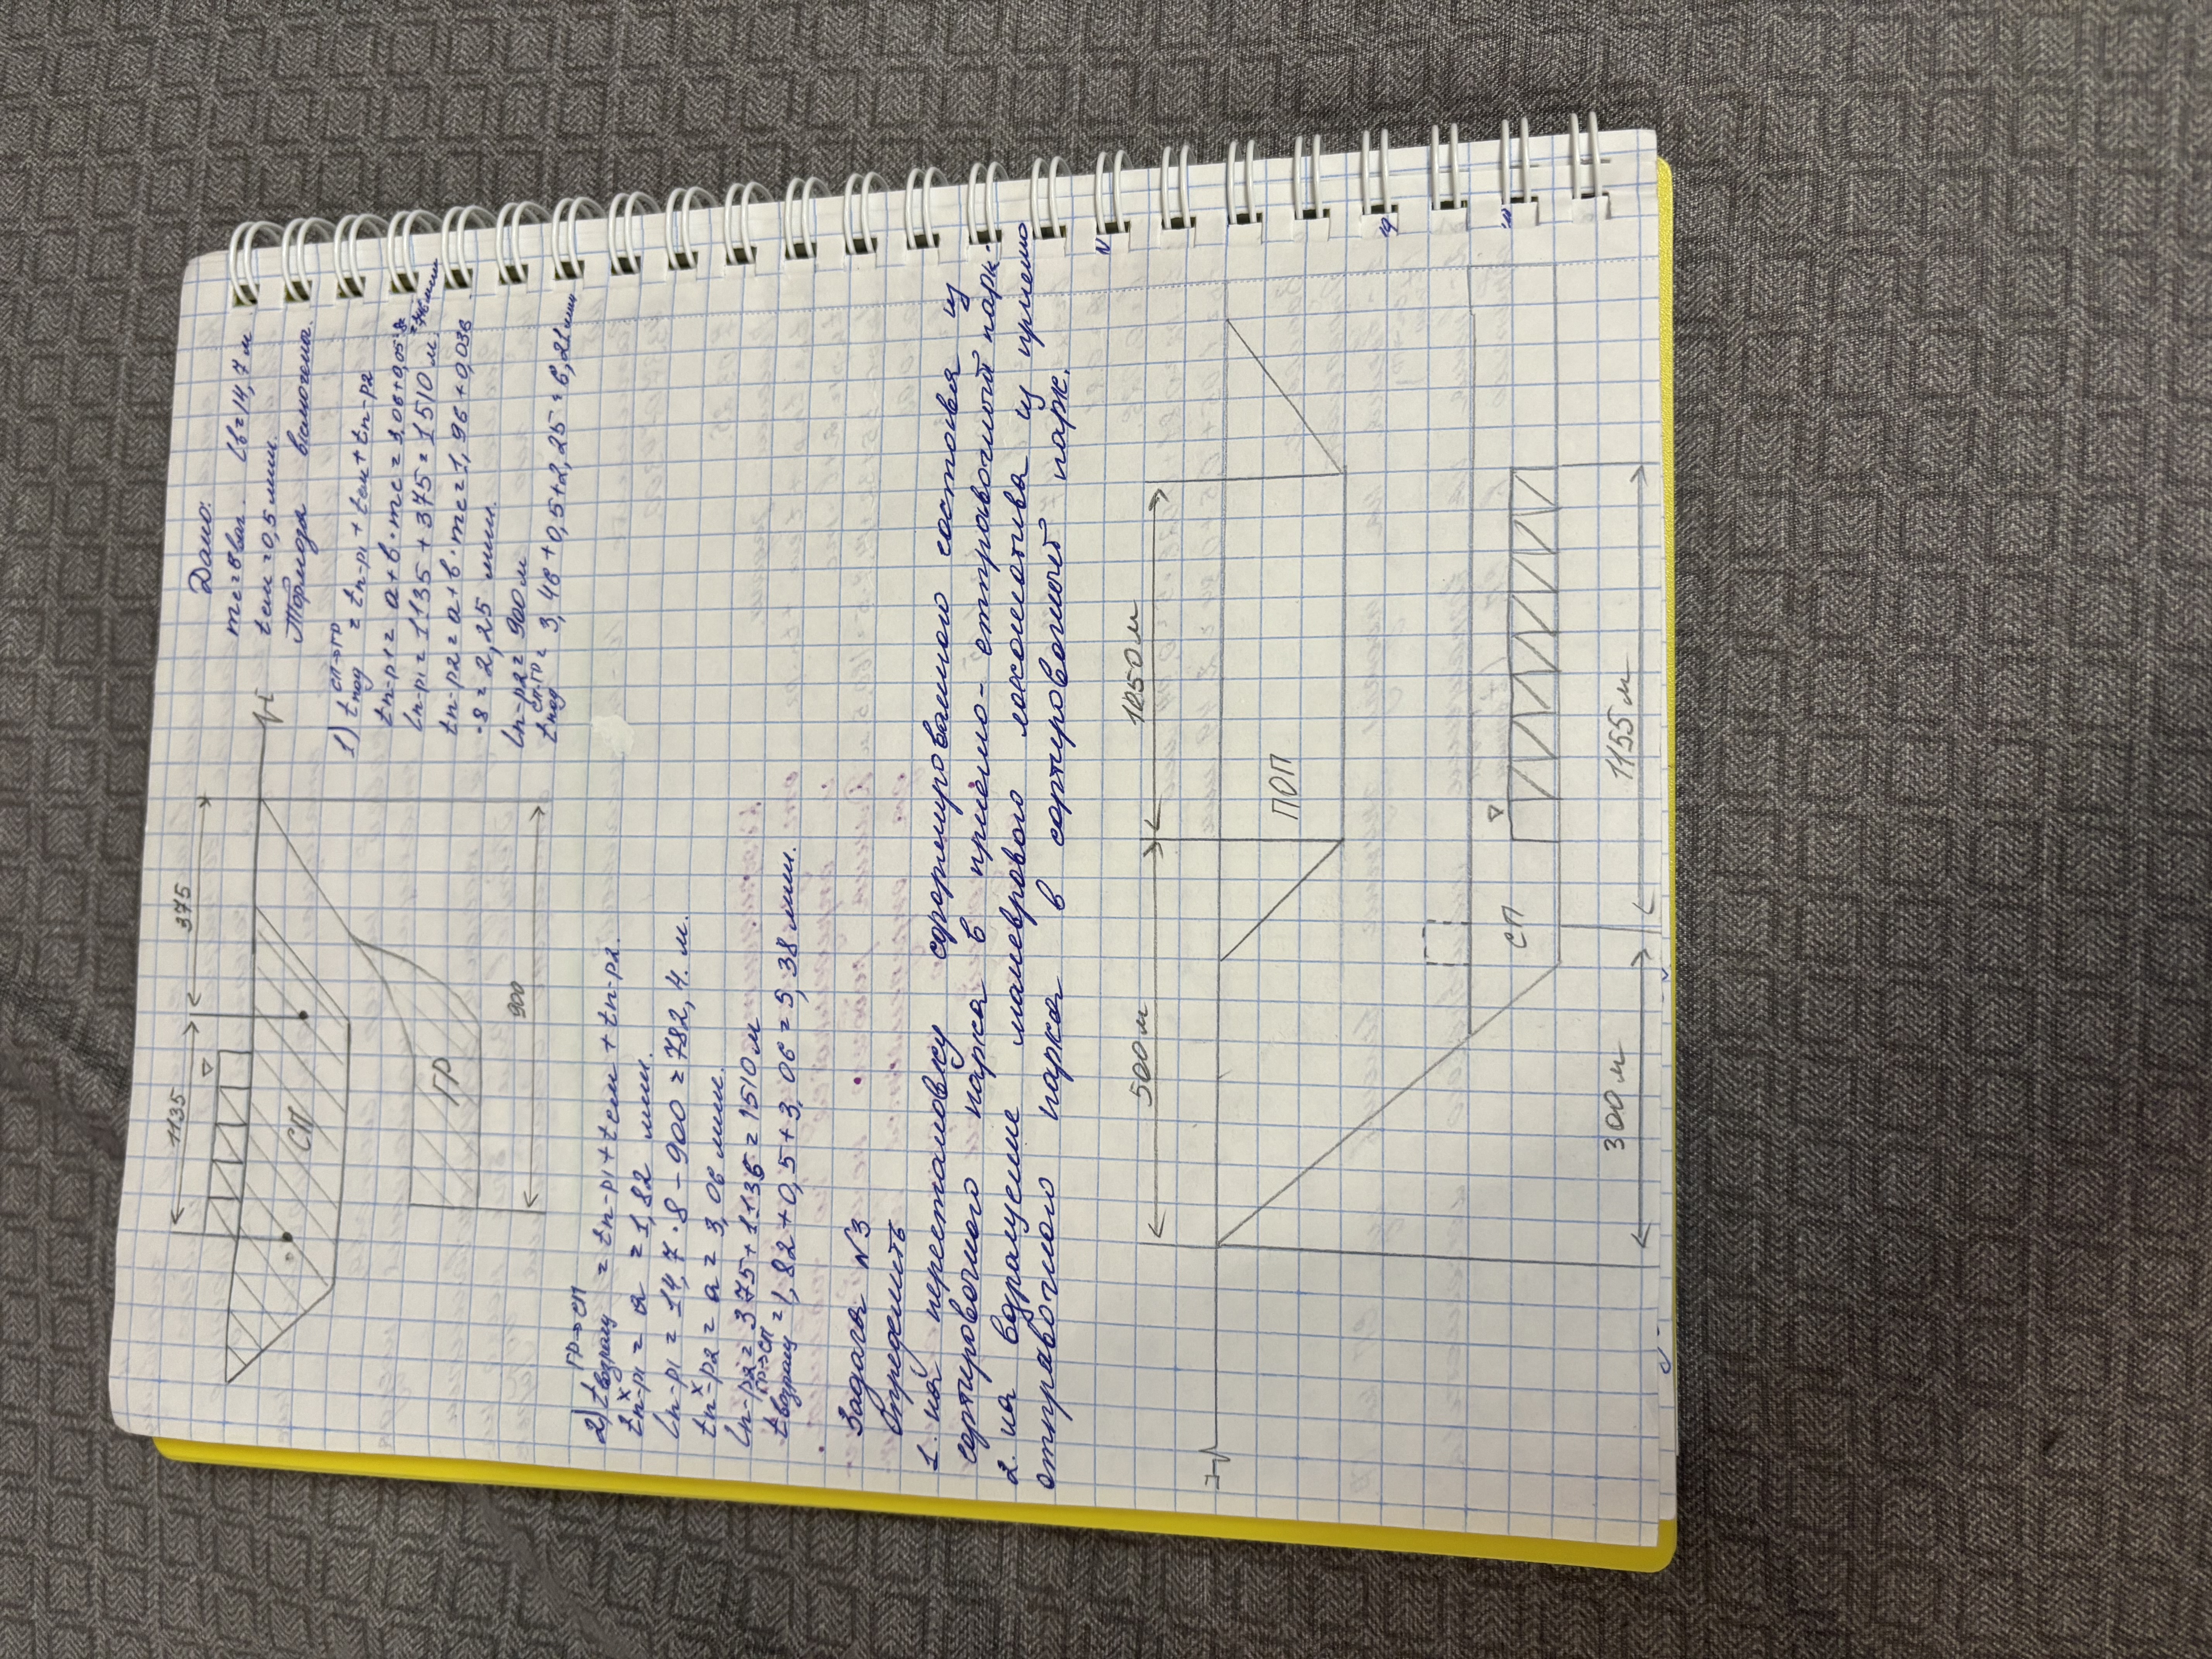 1135
375
СП
ГР
900
Дано:
mc=8ваг. lв=14,7 м
tсм=0,5 мин.
Тормоза включена.
1) tпод СП→ГР = tп-р1 + tсм + tп-р2
tп-р1 = a+в·mc = 3,06+0,05·8=
lп-р1 = 1135+375=1510 м.
tп-р2 = a+в·mc=1,96+0,036
·8=2,25 мин.
lп-р2 = 900м
tпод СП-ГР = 3,46+0,5+2,25=6,21мин
2) tвозращ ГР→СП = tп-р1+tсм+tп-р2.
tп-р1 х = a = 1,82 мин.
lп-р1 = 14,7·8-900=782,4 м.
tп-р2 х = a = 3,06 мин.
lп-р2=375+1135=1510м
tвозращ ГР→СП =1,82+0,5+3,06=5,38 мин.
Задача №3
Определить
1. на перестановку сформированного состава из
сортировочного парка в приемо-отправочный парк.
2. на возращение маневрового локомотива из приемо
отправочного парка в сортировочный парк.
500м
1050м
ПОП
СП
300м
1155м